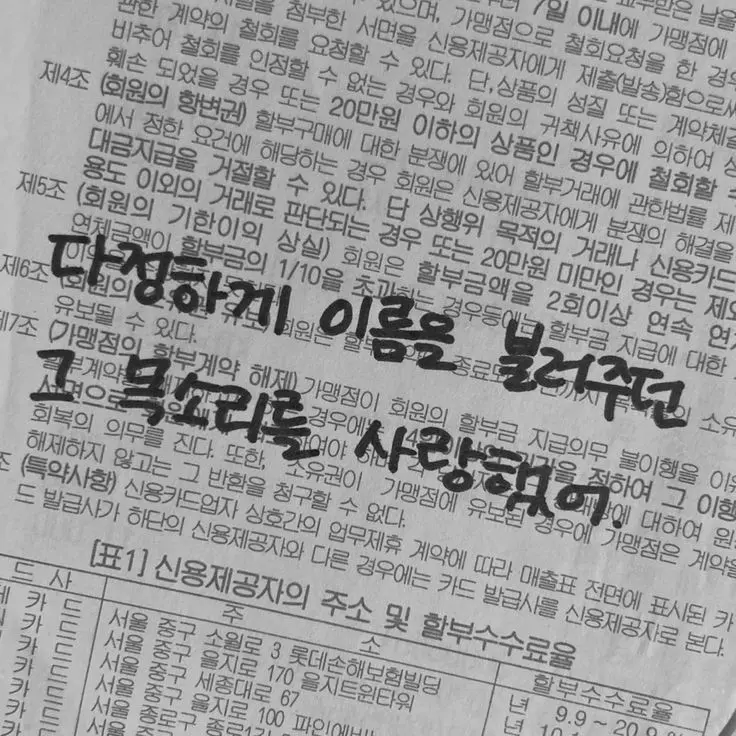 7일 이내에 가맹점에
첨부한 서면을 신용제공자에게 제출(발송)함으로써
관한 계약의 철회를 요청할 수 있으며, 가맹점으로 철회요청을 한 경우
비추어 철회를 인정할 수 없는 경우와 회원의 귀책사유에 의하여 상
훼손 되었을 경우 또는 20만원 이하의 상품인 경우에 철회할 수
제4조 (회원의 항변권) 할부구매에 대한 분쟁에 있어 할부거래에 관한법률 제
에서 정한 요건에 해당하는 경우 회원은 신용제공자에게 분쟁의 해결을
대금지급을 거절할 수 있다. 단 상행위 목적의 거래나 신용카드
용도 이외의 거래로 판단되는 경우 또는 20만원 미만인 경우는 제외
제5조 (회원의 기한이익 상실) 회원은 할부금액을 2회이상 연속 연체
연체금액이 할부금의 1/10을 초과하는 경우
다정하게 이름을 불러주던
제6조
유보될 수 있다.
제7조 (가맹점의 할부계약 해제) 가맹점이 회원의 할부금 지급의무 불이행을 이유
그 목소리를 사랑했어.
정하여 그 이행
회복의 의무를 진다. 또한, 소유권이 가맹점에 유보된 경우에 가맹점은 계약을
해제하지 않고는 그 반환을 청구할 수 없다.
조 (특약사항) 신용카드업자 상호간의 업무제휴 계약에 따라 매출표 전면에 표시된 카
드 발급사가 하단의 신용제공자와 다른 경우에는 카드 발급사를 신용제공자로 본다.
[표1] 신용제공자의 주소 및 할부수수료율
드 사 주 소 할부수수료율
카 드 서울 중구 소월로 3 롯데손해보험빌딩 년 9.9 ~ 20.9
카드 서울 중구 을지로 170 을지트윈타워 년
카드 서울 중구 세종대로 67
카드 서울 중구 을지로 100
서울 종로구